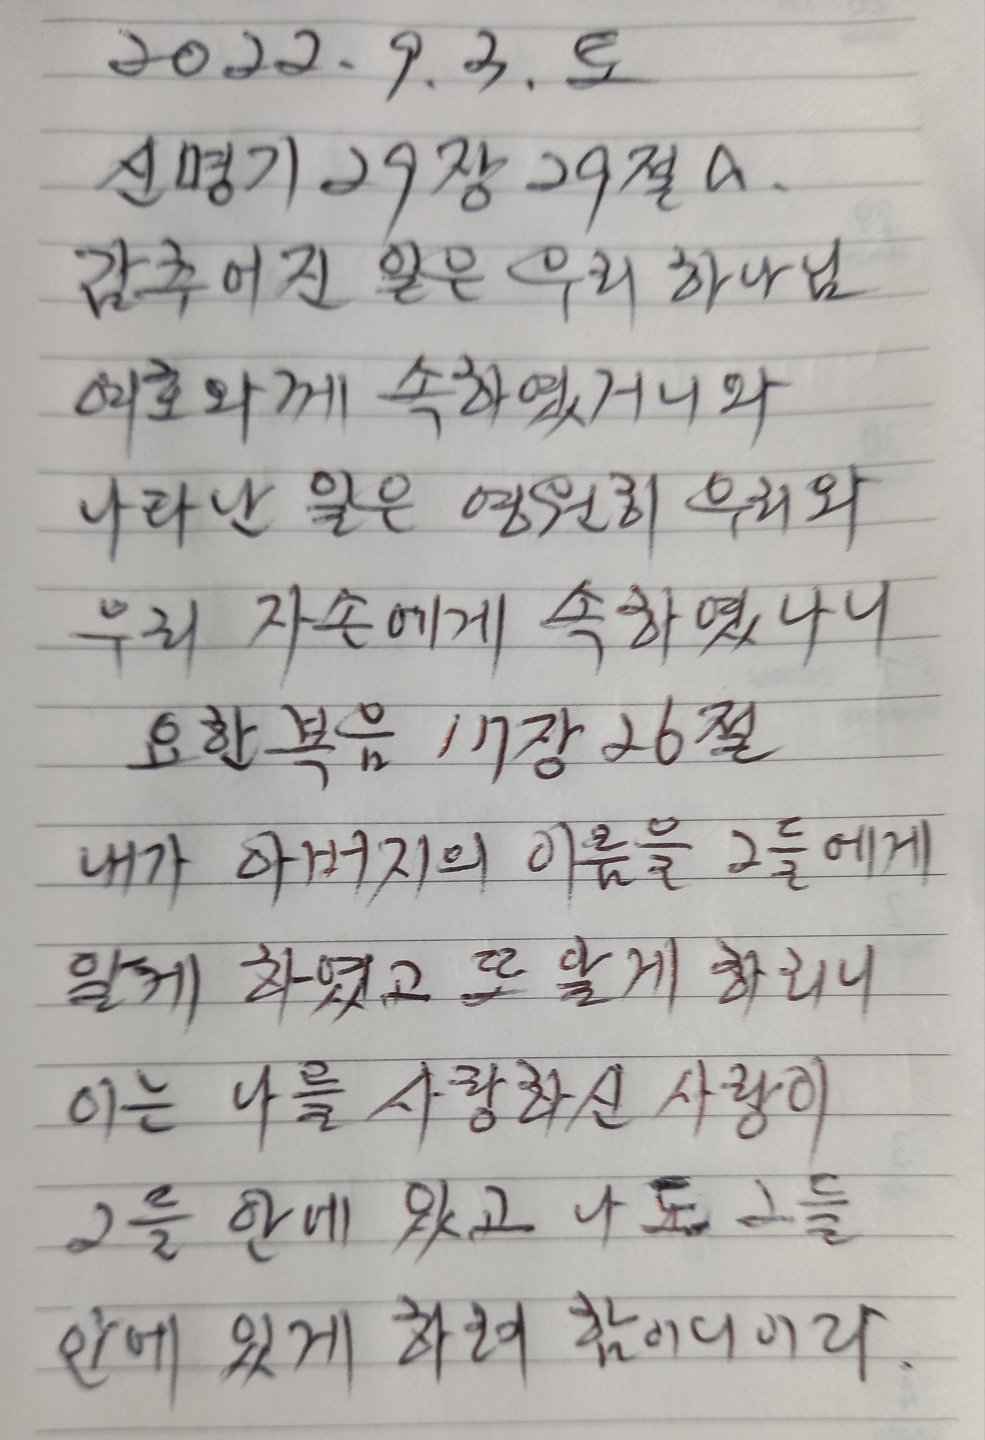 2022. 9. 3. 토
신명기 29장 29절 a.
감추어진 일은 우리 하나님
여호와께 속하였거니와
나타난 일은 영원히 우리와
우리 자손에게 속하였나니
요한복음 17장 26절
내가 아버지의 이름을 그들에게
알게 하였고 또 알게 하리니
이는 나를 사랑하신 사랑이
그들 안에 있고 나도 그들
안에 있게 하려 함이니이다.